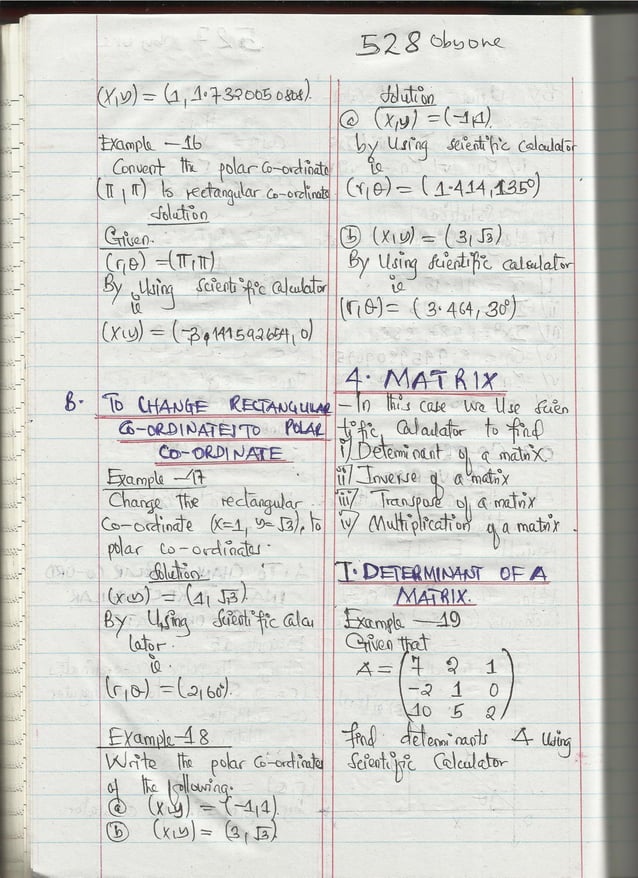 528 Obyone
(X,y) = (1, 1.7320050808).
Example - 16
Convent the polar co-ordinate
(π, π) to rectangular co-ordinate
Solution
Given.
(r,θ) = (π,π)
By Using Scientific Calculator
ie
(X,y) = (-3.141592654, 0)
B. TO CHANGE RECTANGULAR
CO-ORDINATES TO POLAR
CO-ORDINATE
Example - 17
Change the rectangular
Co-ordinate (X=1, y=√3), to
polar co-ordinates.
Solution
(x,y) = (1, √3)
By Using Scientific Calcu
lator.
ie.
(r,θ) = (2,60°).
Example - 18
Write the polar co-ordinates
of the following.
ⓐ (x,y) = (-1,1)
ⓑ (x,y) = (3, √3)
Solution
ⓐ (x,y) = (-1,1)
by Using scientific calculator
ie
(r,θ) = (1.414, 135°)
ⓑ (x,y) = (3, √3)
By Using scientific calculator
ie
(r,θ) = (3.464, 30°)
4. MATRIX
- In this case we Use scien
tific Calculator to find
i/ Determinant of a matrix.
ii/ Inverse of a matrix
iii/ Transpose of a matrix
iv/ Multiplication of a matrix.
I. DETERMINANT OF A
MATRIX.
Example - 19
Given that
A = (7 2 1
-2 1 0
10 5 2)
find determinants A Using
Scientific Calculator